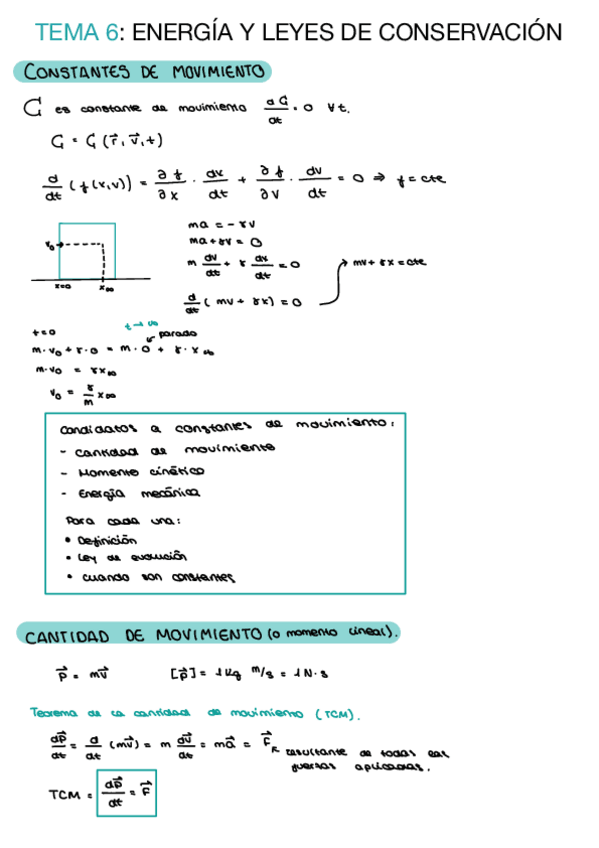 TEMA 6: ENERGÍA Y LEYES DE CONSERVACIÓN
CONSTANTES DE MOVIMIENTO
G es constante de movimiento dG/dt = 0 ∀t.
G = G (r⃗, v⃗, t)
d/dt (f(x,v)) = ∂f/∂x · dx/dt + ∂f/∂v · dv/dt = 0 ⇒ f = cte
v₀
x=0 x∞
ma = -γv
ma + γv = 0
m dv/dt + γ dx/dt = 0
mv + γx = cte
d/dt (mv + γx) = 0
t=0 t→∞
parado
m·v₀ + γ·0 = m·0 + γ·x∞
m·v₀ = γx∞
v₀ = γ/m x∞
Candidatos a constantes de movimiento:
- Cantidad de movimiento
- Momento cinético
- Energía mecánica
Para cada una:
• Definición
• Ley de evolución
• cuando son constantes
CANTIDAD DE MOVIMIENTO (o momento lineal).
p⃗ = mv⃗ [p⃗] = 1 Kg m/s = 1 N·s
Teorema de la cantidad de movimiento (TCM).
dp⃗/dt = d/dt (mv⃗) = m dv⃗/dt = ma⃗ = F⃗R resultante de todas las
fuerzas aplicadas.
TCM = dp⃗/dt = F⃗